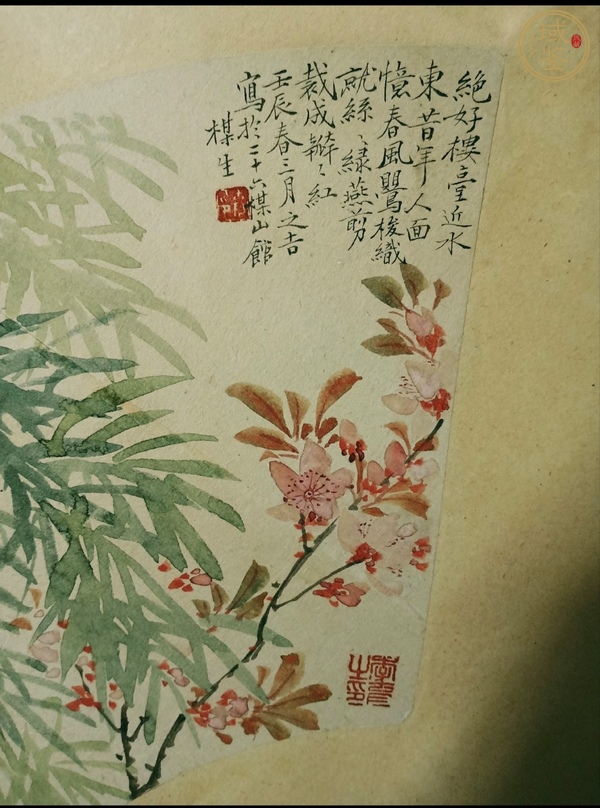 絕好樓臺近水
東昔年人面
憶春風鶯梭織
就絲〻綠燕剪
裁成瓣〻紅
壬辰春三月之吉
寫於二十六楳山館
楳生